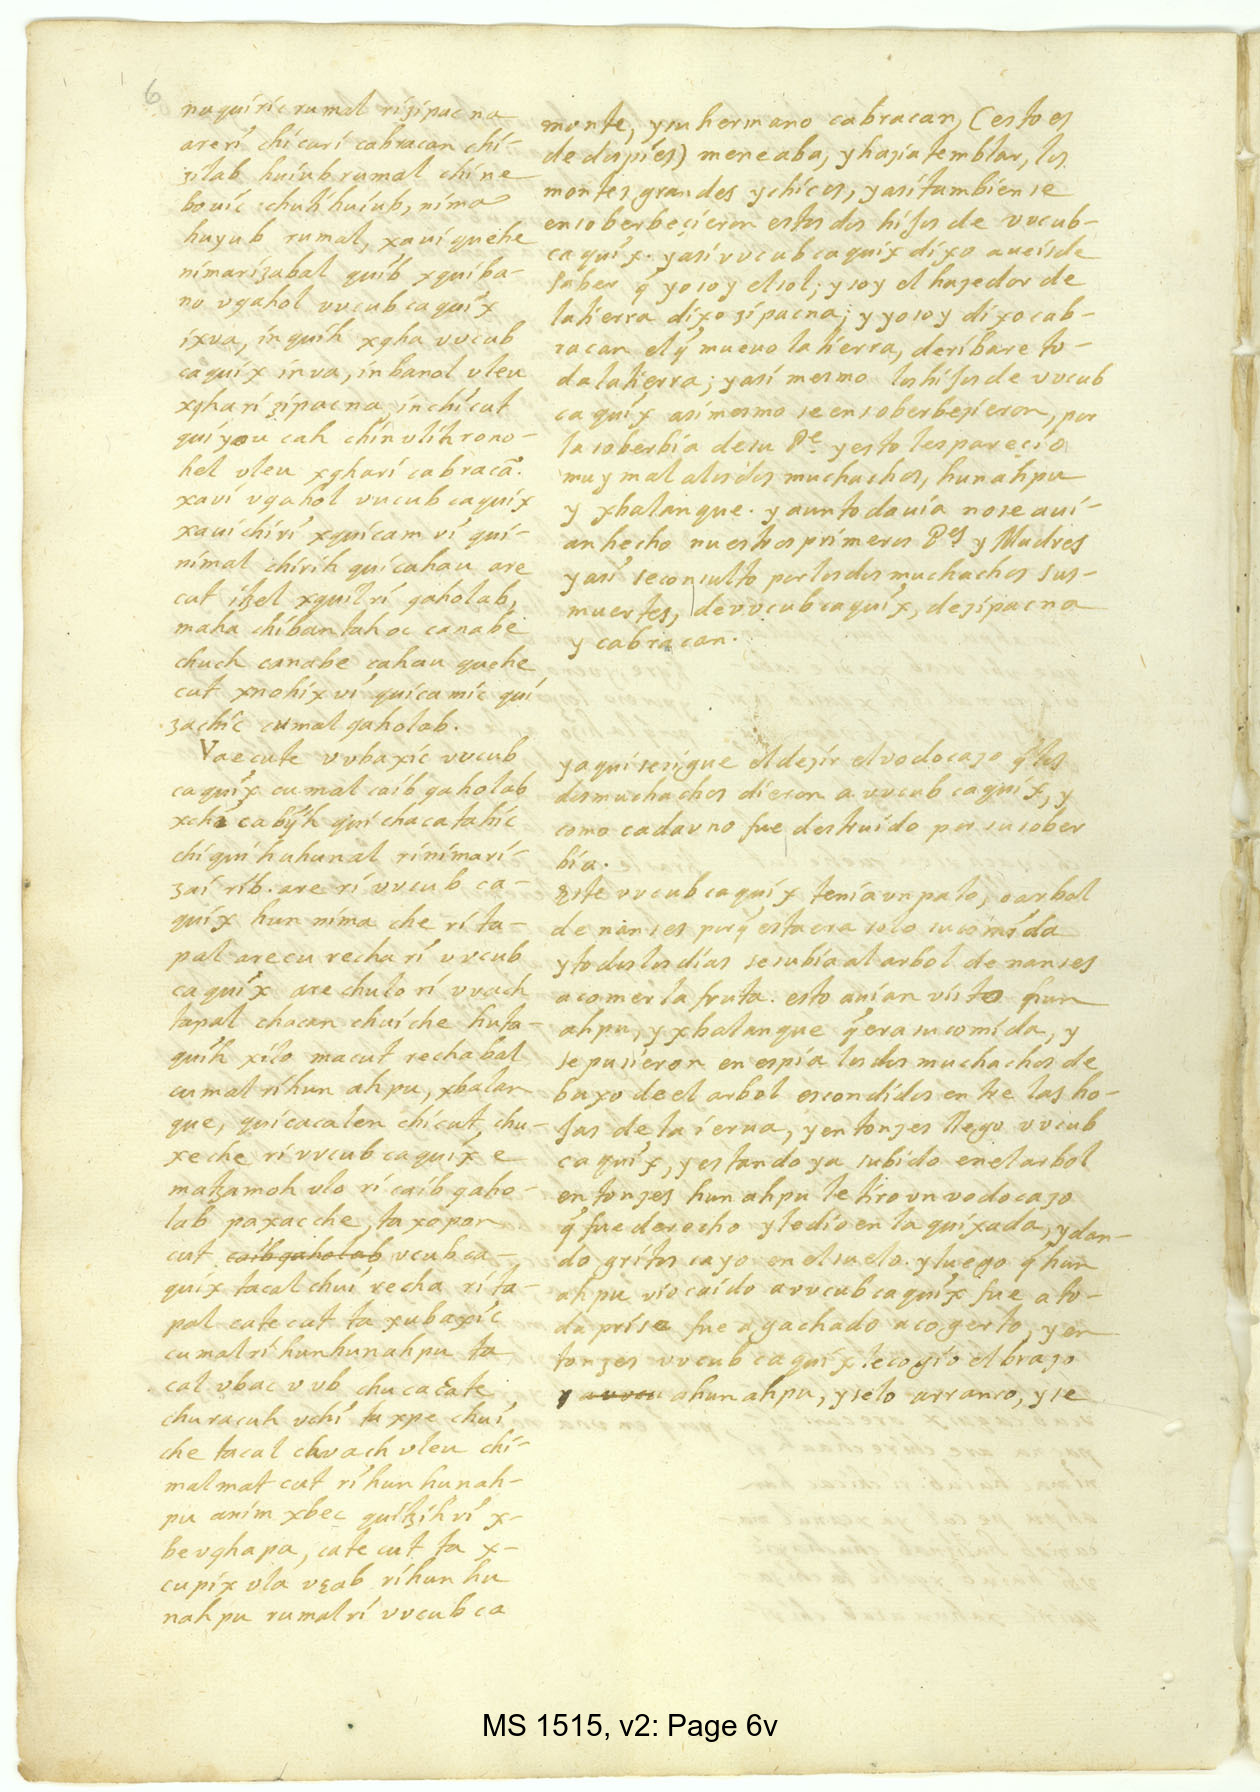 6
nuquíríc rumal ri zipacna
areri chícuri cabracan chí-
zilab huíub rumal chíne
bouíc chutí huíub, nima
huyub rumal, xauí quehe
nimarizabal quíb xquíba-
no vgahol vvcub caquíx
íxva, ín quíh xgha vvcub
caquíx ínva, ín banol vleu
xghari zípacna, ínchícut
quíyou cah chín vlíh rono-
hel vleu xgharí cabracã.
xaví vgahol vucub caquíx
xauí chírí xquícam ví quí-
nimal chíríh quícahau are
cut ítzel xquíl rí gaholab,
maha chíban tahoc canabe
chuch canabe cahau quehe
cut xnohíx ví quícamíc quí
zachíc cumal gaholab.
Vaecute vvbaxíc vvcub
caquíx cumal caíb gaholab
xchi cabíh quí chacatahíc
chíquíhuhunal rinímarí-
zaí ríb. are rí vvcub ca-
quíx hun níma che rí ta-
pal arecu recha rí vvcub
caquíx are chulo rí vvach
tapal chacan chuíche huta-
quíh xílo macut rechabal
cumal ríhun ahpu, xbalan
que, quícacalen chícut, chu-
xeche rí vvcub caquíx e
matzamoh vlo rí caíb gaho-
lab paxacche, ta xopon
cut caíb gaholab vcub ca-
quíx tacal chuí recha rí ta-
pal catecut ta xubaxíc
cumal ríhunhunahpu ta
cal vbac v vb chucacate
churacuh vchí ta xpe chuí
che tacal chvach vleu chí-
malmat cut ríhun hunah-
pu aním xbec quítzíh ví x-
be vghapa, cate cut ta x-
cupíx vla vɛab ríhun hu
nahpu rumal rí vvcub ca
monte, y su hermano cabracan, (esto es
de dos píes) meneaba, y hazía temblar, los
montes grandes y chícos, y asi tambien se
ensoberbeçieron estos dos híjos de vucub-
caquíx. y así vvcub caquíx díxo aueís de
saber q̃ yo soy el sol; y soy el hazedor de
la tierra díxo zípacna; y yo soy díxo cab-
racan el q̃ mueuo la tíerra, deríbare to-
da la tierra; y así mesmo los híjos de vvcub
caquíx asi mesmo se ensoberbezíeron, por
la soberbía de su Pe. y esto les pareçío
muy mal a los dos muchachos, hunahpu
y xbalanque. y aun todauía no se auí-
an hecho nuestros prímeros Pes y Madres
y así se consulto por los dos muchachos sus-
muertes, de vvcub caquíx, de zípacna
y cabracan.
y aqui se sigue el dezír el vodocazo q̃ los
dos muchachos díeron a vvcub caquíx, y
como cada vno fue destruido por su sober
bía.
Este vvcub caquíx tenía vn palo, o arbol
de nanses porq̃ esta era solo su comída
y todos los días se subía al arbol de nanses
a comer la fruta. esto auían vísto hun
ahpu, y xbalanque q̃ era su comída, y
se pusíeron en espía los dos muchachos de
baxo de el arbol escondídos entre las ho-
jas de la íerua, y entonzes llego vvcub
caquíx, y estando ya subído en el arbol
entonzes hunahpu le tíro vn vodocazo
q̃ fue derecho y le dío en la quíxada, y dan-
do grítos cayo en el suelo. y luego q̃ hun
ahpu vío caído a vvcub caquíx fue a to-
da prísa fue agachado a cogerlo, y en
tonzes vvcub caquíx le cogío el brazo
y a vvcu a hunahpu, y se lo arranco, y se
MS 1515, v2: Page 6v